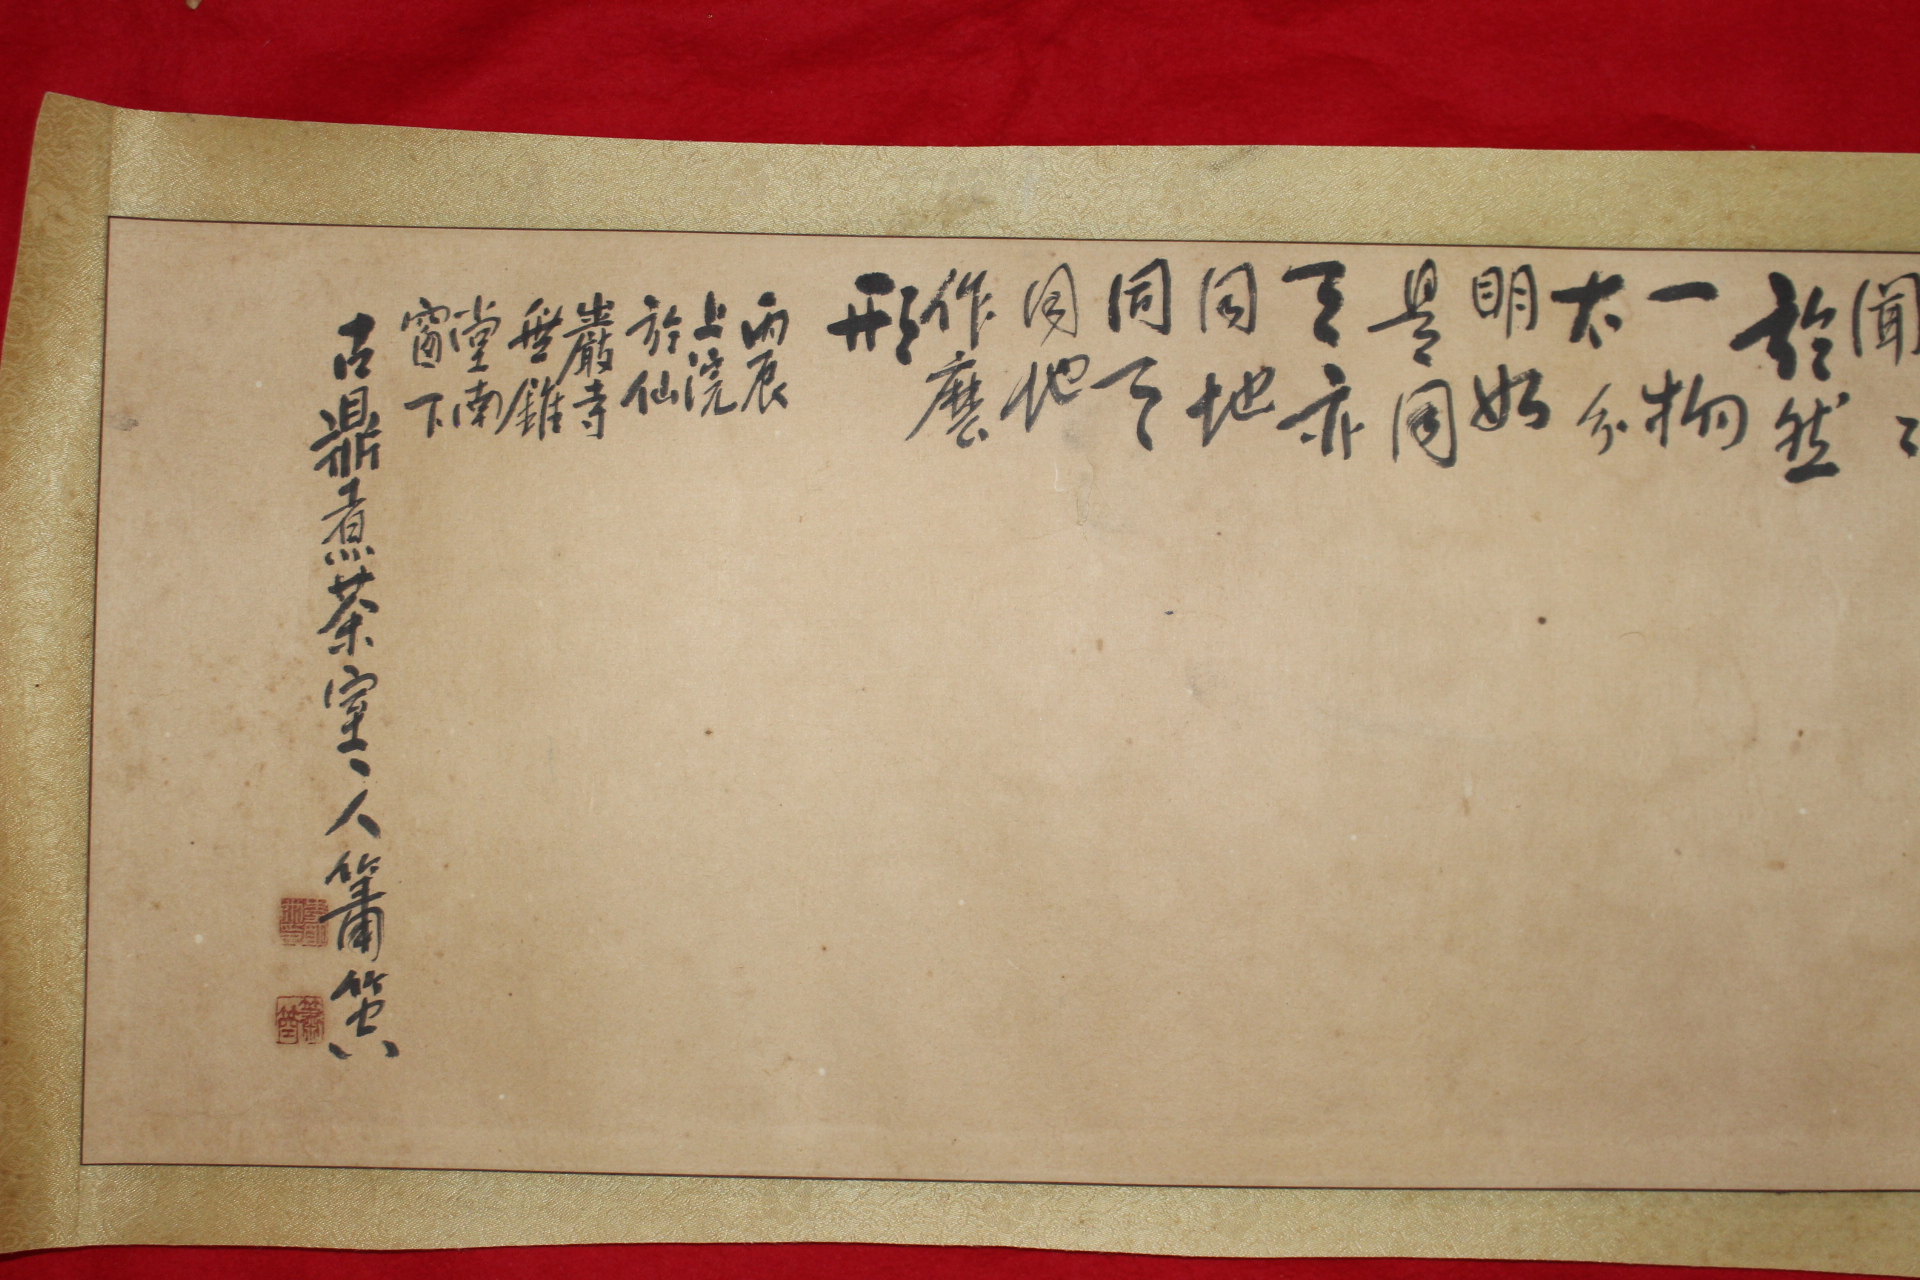 聞〻
於然
一物
太分
明如
是同
天亦
同地
同天
同地
作麽
形
丙辰
上浣
於仙
巖寺
無錐
堂南
窗下
古鼎煮茶室〻人簫